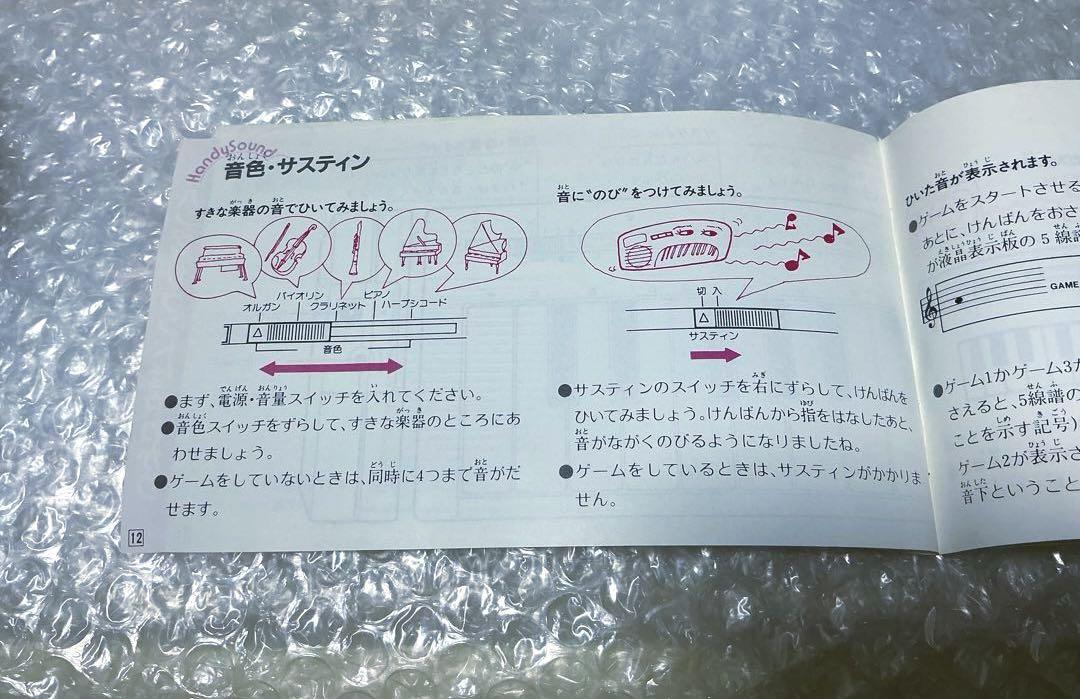 HandySound
おんしょく
音色・サスティン
がっき おと
すきな楽器の音でひいてみましょう。
バイオリン ピアノ
オルガン クラリネット ハープシコード
音色
でんげん おんりょう い
●まず、電源・音量スイッチを入れてください。
おんしょく がっき
●音色スイッチをずらして、すきな楽器のところにあ
わせましょう。
どうじ おと
●ゲームをしていないときは、同時に4つまで音がだ
せます。
12
おと
音に“のび”をつけてみましょう。
切 入
サスティン
みぎ
●サスティンのスイッチを右にずらして、けんばんを
ゆび
ひいてみましょう。けんばんから指をはなしたあと、
おと
音がながくのびるようになりましたね。
●ゲームをしているときは、サスティンがかかりま
せん。
おと ひょうじ
ひいた音が表示されます。
●ゲームをスタートさせる
あとに、けんばんをおさ
えきしょうひょうじばん せんふ
が液晶表示板の5線譜
GAME
●ゲーム1かゲーム3か
せんふ
さえると、5線譜の
しめ きごう
ことを示す記号)
ひょうじ
ゲーム2が表示さ
おんした
音下ということ